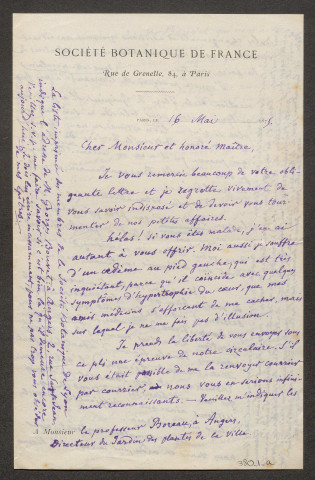 SOCIÉTÉ BOTANIQUE DE FRANCE
Rue de Grenelle, 84, à Paris
PARIS, LE 16 Mai
Cher Monsieur et honoré maître,
Je vous remercie beaucoup de votre obli-
geante lettre et je regrette vivement de
vous savoir indisposé et de devoir vous tour-
menter de nos petites affaires.
Hélas! si vous êtes malade, j'en ai
autant à vous offrir. Moi aussi je souffre
d'un œdème au pied gauche, qui est très
inquiétant, parce qu'il coïncide avec quelques
symptômes d'hypertrophie du cœur, que mes
amis médecins s'efforcent de me cacher, mais
sur lequel je ne me fais pas d'illusion.
Je prends la liberté de vous envoyer sous
ce pli une épreuve de notre circulaire. S'il
vous était possible de me la renvoyer courrier
par courrier, nous vous en serions infini-
ment reconnaissants. — Veuillez m'indiquer les
A Monsieur le professeur Boreau, à Angers,
Directeur du Jardin des plantes de la Ville
La liste imprimée des membres de la Société botanique de Lyon
indique l'adresse de M. Georges Bouvet à Angers, 2, rue